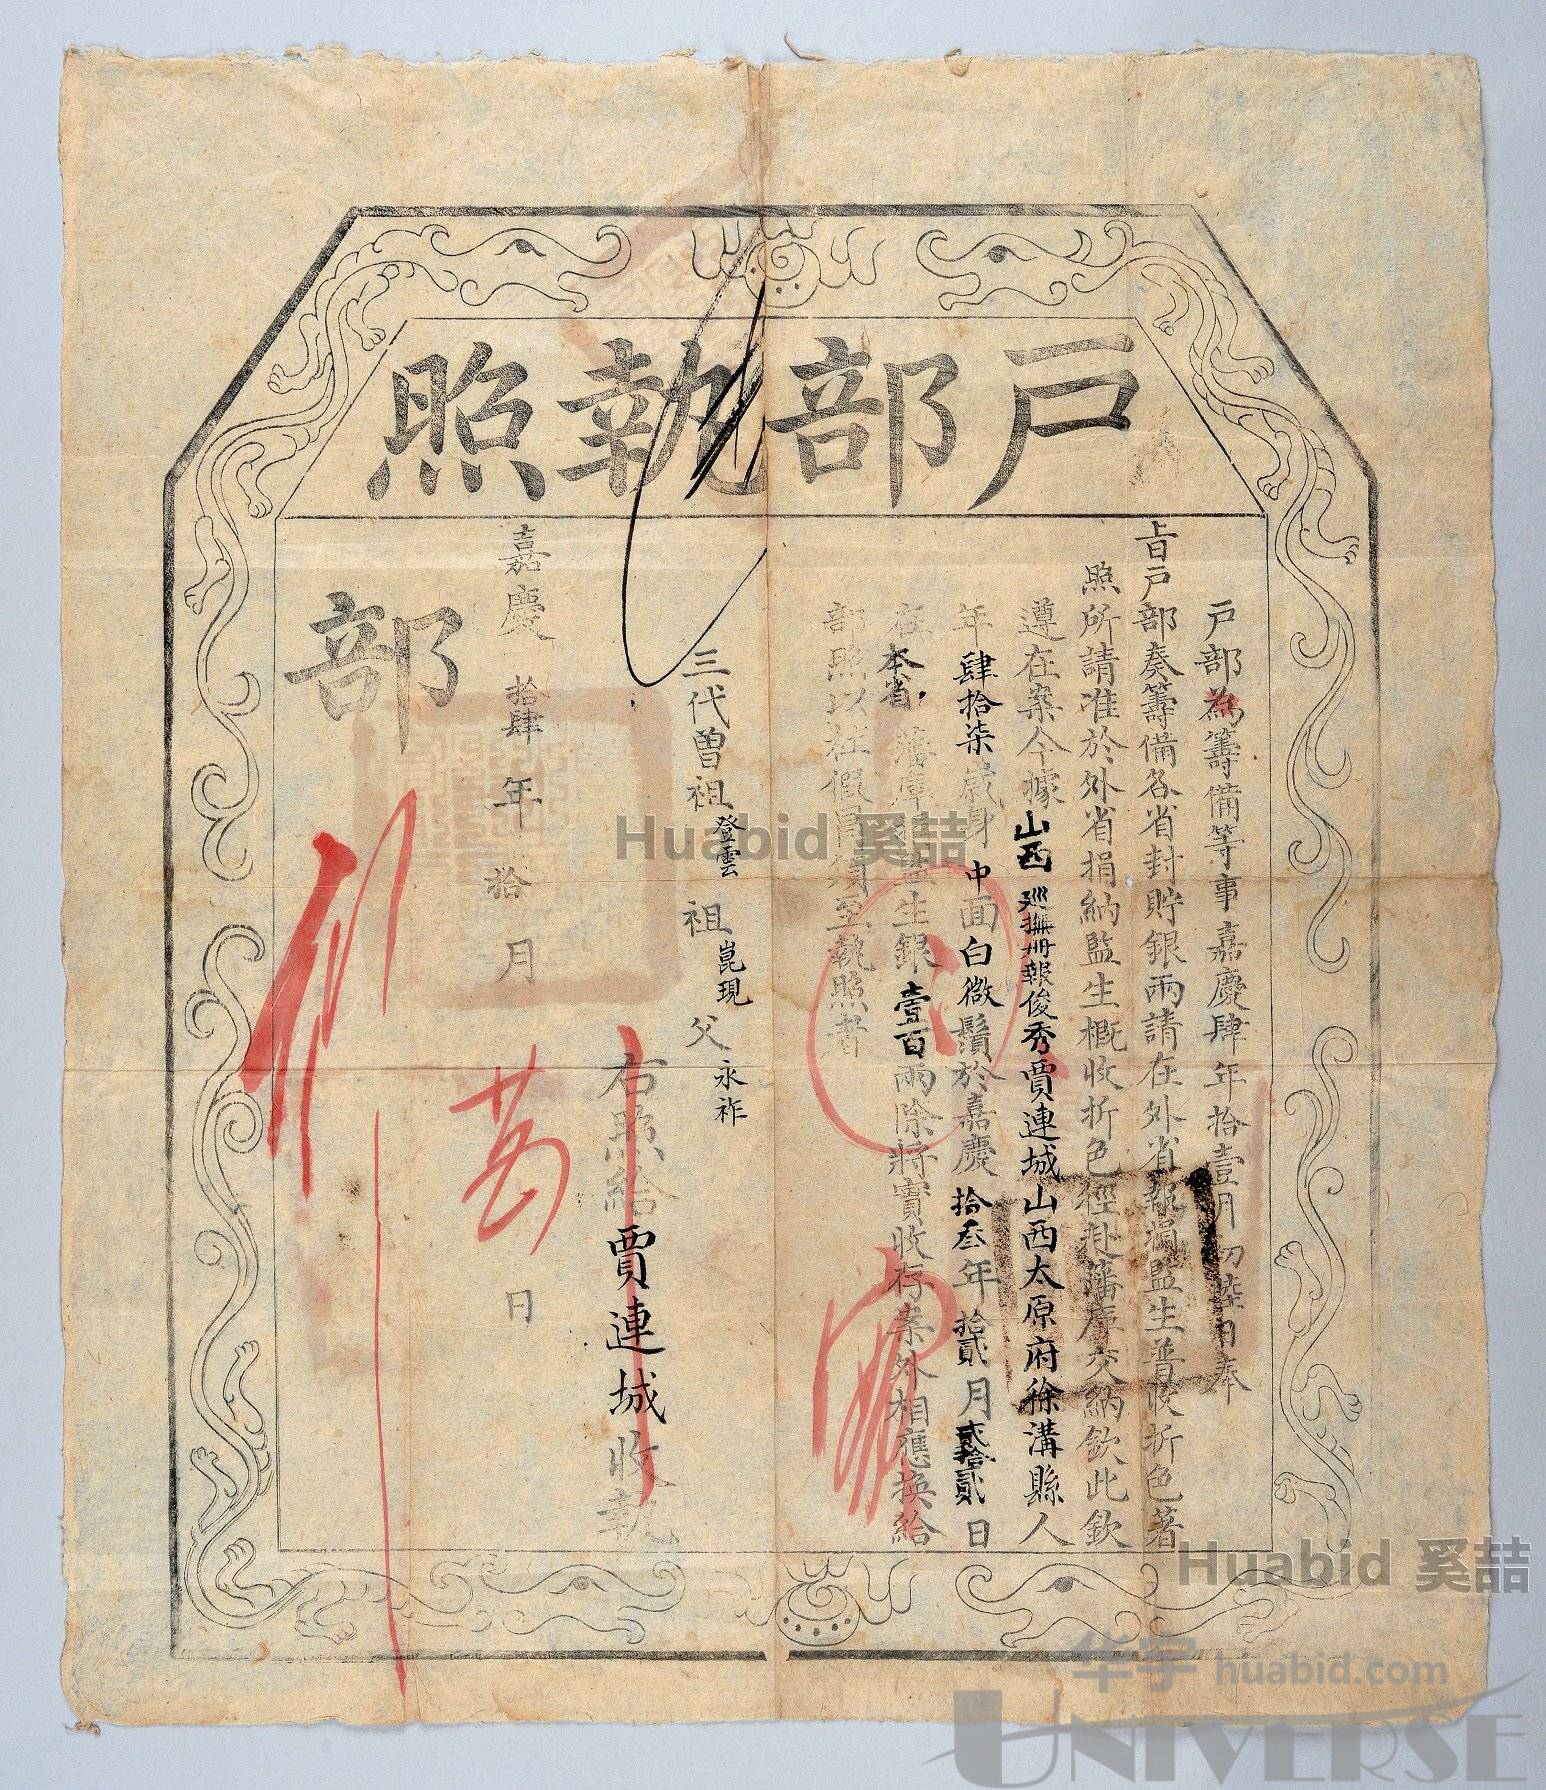 戶部執照
戶部為籌備等事嘉慶肆年拾壹月初陸日奉
上旨戶部奏籌備各省封貯銀兩請在外省報捐監生普收折色著
照所請准於外省捐納監生概收折色徑赴藩庫交納欽此欽
遵在案今據山西巡撫冊報俊秀賈連城山西太原府徐溝縣人
年肆拾柒歲身中面白微鬚於嘉慶拾叁年拾貳月貳拾貳日
在本省藩庫 監生銀壹百兩除將實收存案外相應換給
部照以杜假冒須至執照者
三代曾祖登雲 祖崑現 父永祚
右照給賈連城收執
嘉慶拾肆年拾月 日
部
Huabid 奚喆
Huabid 奚喆
华宇 huabid.com
UNIVERSE